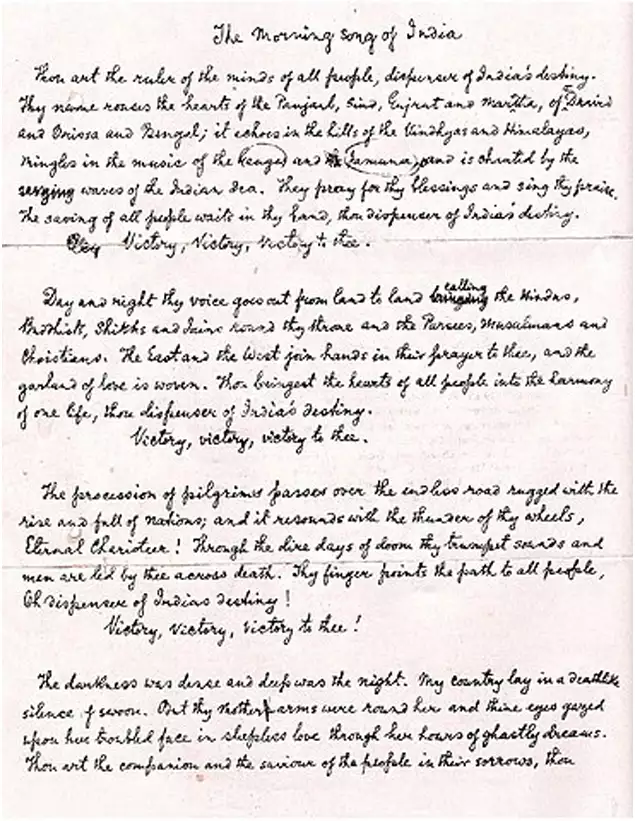 The Morning song of India
Thou art the ruler of the minds of all people, dispenser of India's destiny.
Thy name rouses the hearts of the Panjaub, Sind, Gujrat and Maratha, of Dravid
and Orissa and Bengal; it echoes in the hills of the Vindhyas and Himalayas,
mingles in the music of the Ganges and Jamuna, and is chanted by the
surging waves of the Indian Sea. They pray for thy blessings and sing thy praise.
The saving of all people waits in thy hand, thou dispenser of India's destiny.
Victory, Victory, Victory to thee.
Day and night thy voice goes out from land to land calling the Hindus,
Buddhists, Shikhs and Jains round thy throne and the Parsees, Musulmans and
Christians. The East and the West join hands in their prayer to thee, and the
garland of love is woven. Thou bringest the hearts of all people into the harmony
of one life, thou dispenser of India's destiny.
Victory, victory, victory to thee.
The procession of pilgrims passes over the endless road rugged with the
rise and fall of nations; and it resounds with the thunder of thy wheels,
Eternal Charioteer! Through the dire days of doom thy trumpet sounds and
men are led by thee across death. Thy finger points the path to all people,
Oh dispenser of India's destiny!
Victory, victory, victory to thee!
The darkness was dense and deep was the night. My country lay in a deathlike
silence of swoon. But thy mother arms were round her and thine eyes gazed
upon her troubled face in sleepless love through her hours of ghastly dreams.
Thou art the companion and the saviour of the people in their sorrows, thou